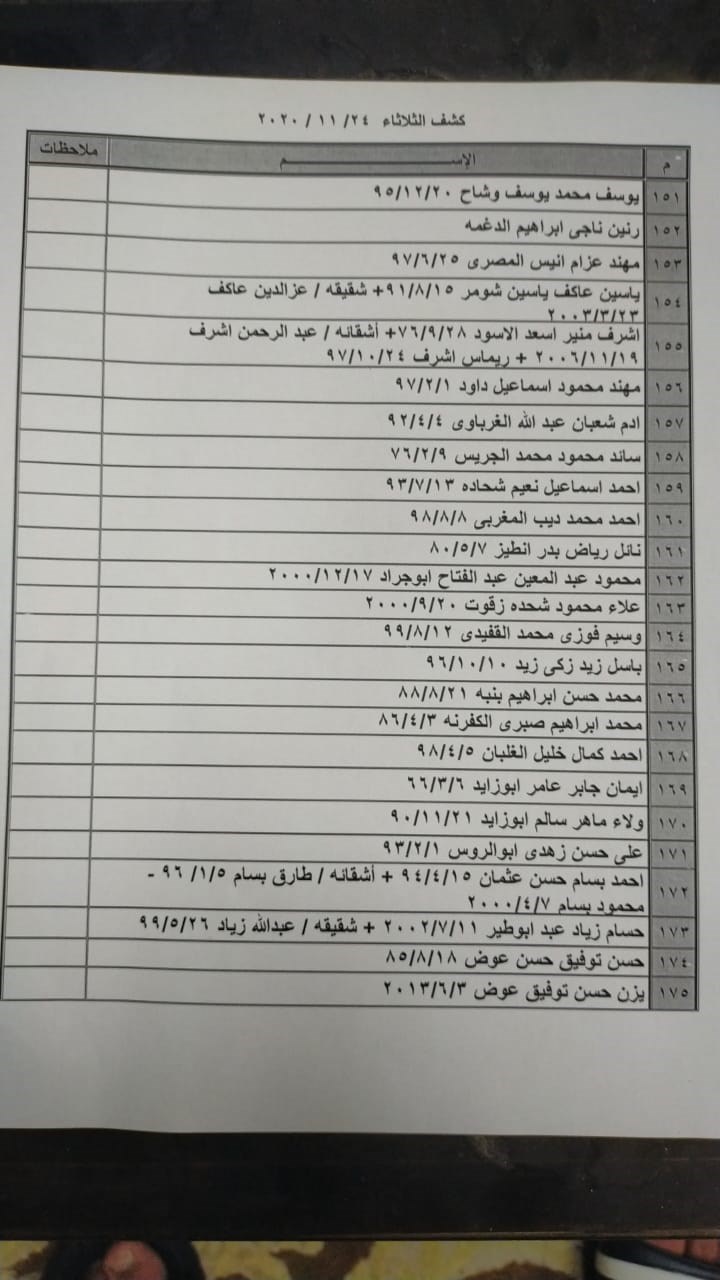 كشف الثلاثاء ٢٤/ ١١ / ٢٠٢٠
م الإســـــــــــم ملاحظات
١٥١ يوسف محمد يوسف وشاح ٩٥/١٢/٢٠
١٥٢ رنين ناجى ابراهيم الدغمه
١٥٣ مهند عزام انيس المصرى ٩٧/٦/٢٥
١٥٤ ياسين عاكف ياسين شومر ٩١/٨/١٥+ شقيقه / عزالدين عاكف
٢٠٠٣/٣/٢٣
١٥٥ اشرف منير اسعد الاسود ٧٦/٩/٢٨+ أشقائه / عبد الرحمن اشرف
٢٠٠٦/١١/١٩ + ريماس اشرف ٩٧/١٠/٢٤
١٥٦ مهند محمود اسماعيل داود ٩٧/٢/١
١٥٧ ادم شعبان عبد الله الغرباوى ٩٢/٤/٤
١٥٨ سائد محمود محمد الجريس ٧٦/٢/٩
١٥٩ احمد اسماعيل نعيم شحاده ٩٣/٧/١٣
١٦٠ احمد محمد ديب المغربى ٩٨/٨/٨
١٦١ نائل رياض بدر انطيز ٨٠/٥/٧
١٦٢ محمود عبد المعين عبد الفتاح ابوجراد ٢٠٠٠/١٢/١٧
١٦٣ علاء محمود شحده زقوت ٢٠٠٠/٩/٢٠
١٦٤ وسيم فوزى محمد القفيدى ٩٩/٨/١٢
١٦٥ باسل زيد زكى زيد ٩٦/١٠/١٠
١٦٦ محمد حسن ابراهيم بنبه ٨٨/٨/٢١
١٦٧ محمد ابراهيم صبرى الكفرنه ٨٦/٤/٣
١٦٨ احمد كمال خليل الغلبان ٩٨/٤/٥
١٦٩ ايمان جابر عامر ابوزايد ٦٦/٣/٦
١٧٠ ولاء ماهر سالم ابوزايد ٩٠/١١/٢١
١٧١ على حسن زهدى ابوالروس ٩٣/٢/١
١٧٢ احمد بسام حسن عثمان ٩٤/٤/١٥ + أشقائه / طارق بسام ٩٦ /١/٥ -
محمود بسام ٢٠٠٠/٤/٧
١٧٣ حسام زياد عبد ابوطير ٢٠٠٢/٧/١١ + شقيقه / عبدالله زياد ٩٩/٥/٢٦
١٧٤ حسن توفيق حسن عوض ٨٥/٨/١٨
١٧٥ يزن حسن توفيق عوض ٢٠١٣/٦/٣